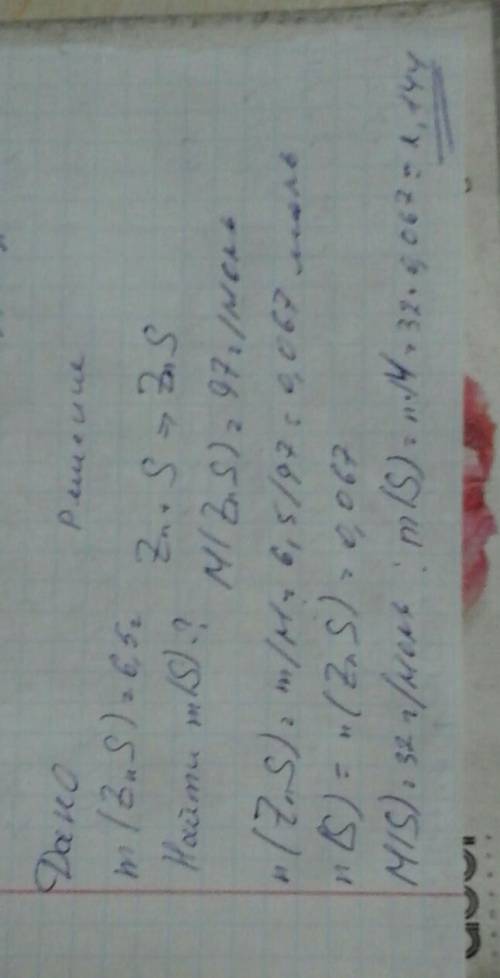 Дано
Решение
m(ZnS)=6,5г
Zn+S=>ZnS
Найти m(S)?
M(ZnS)=97г/моль
n(ZnS)=m/M=6,5/97=0,067 моль
n(S)=n(ZnS)=0,067
M(S)=32г/моль; m(S)=n·M=32·0,067=2,144